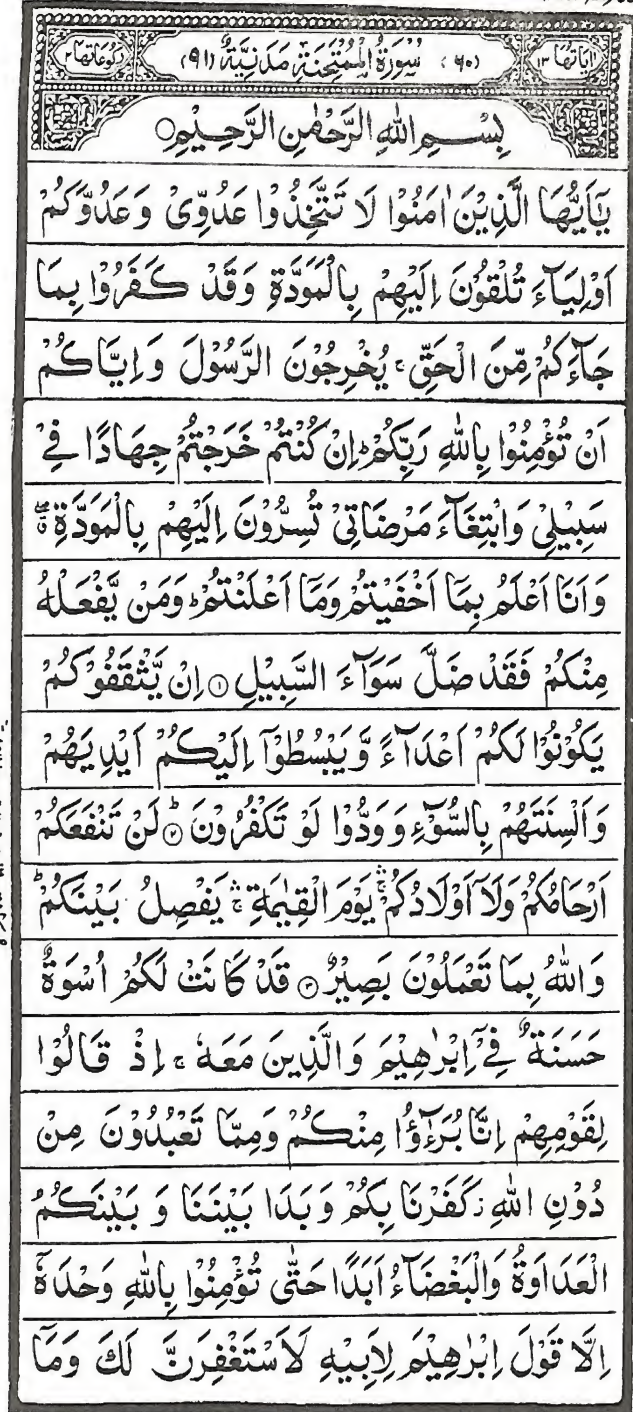 اٰیَاتُهَا ۱۳ (۶۰) سُوْرَةُ الْمُمْتَحِنَةِ مَدَنِیَّةٌ (۹۱) رُكُوْعَاتُهَا ۲
بِسْمِ اللّٰهِ الرَّحْمٰنِ الرَّحِیْمِ○
یٰۤاَیُّهَا الَّذِیْنَ اٰمَنُوْا لَا تَتَّخِذُوْا عَدُوِّیْ وَعَدُوَّكُمْ
اَوْلِیَآءَ تُلْقُوْنَ اِلَیْهِمْ بِالْمَوَدَّةِ وَقَدْ كَفَرُوْا بِمَا
جَآءَكُمْ مِّنَ الْحَقِّ ۚ یُخْرِجُوْنَ الرَّسُوْلَ وَاِیَّاكُمْ
اَنْ تُؤْمِنُوْا بِاللّٰهِ رَبِّكُمْ ؕ اِنْ كُنْتُمْ خَرَجْتُمْ جِهَادًا فِیْ
سَبِیْلِیْ وَابْتِغَآءَ مَرْضَاتِیْ تُسِرُّوْنَ اِلَیْهِمْ بِالْمَوَدَّةِ ۖۗ
وَاَنَا اَعْلَمُ بِمَاۤ اَخْفَیْتُمْ وَمَاۤ اَعْلَنْتُمْ ؕ وَمَنْ یَّفْعَلْهُ
مِنْكُمْ فَقَدْ ضَلَّ سَوَآءَ السَّبِیْلِ ۝۱ اِنْ یَّثْقَفُوْكُمْ
یَكُوْنُوْا لَكُمْ اَعْدَآءً وَّیَبْسُطُوْۤا اِلَیْكُمْ اَیْدِیَهُمْ
وَاَلْسِنَتَهُمْ بِالسُّوْٓءِ وَوَدُّوْا لَوْ تَكْفُرُوْنَ ؕ۝۲ لَنْ تَنْفَعَكُمْ
اَرْحَامُكُمْ وَلَاۤ اَوْلَادُكُمْ ۛۚ یَوْمَ الْقِیٰمَةِ ۛۚ یَفْصِلُ بَیْنَكُمْ ؕ
وَاللّٰهُ بِمَا تَعْمَلُوْنَ بَصِیْرٌ ۝۳ قَدْ كَانَتْ لَكُمْ اُسْوَةٌ
حَسَنَةٌ فِیْۤ اِبْرٰهِیْمَ وَالَّذِیْنَ مَعَهٗ ۚ اِذْ قَالُوْا
لِقَوْمِهِمْ اِنَّا بُرَءٰٓؤُا مِنْكُمْ وَمِمَّا تَعْبُدُوْنَ مِنْ
دُوْنِ اللّٰهِ ؗ كَفَرْنَا بِكُمْ وَبَدَا بَیْنَنَا وَ بَیْنَكُمُ
الْعَدَاوَةُ وَالْبَغْضَآءُ اَبَدًا حَتّٰی تُؤْمِنُوْا بِاللّٰهِ وَحْدَهٗۤ
اِلَّا قَوْلَ اِبْرٰهِیْمَ لِاَبِیْهِ لَاَسْتَغْفِرَنَّ لَكَ وَمَاۤ